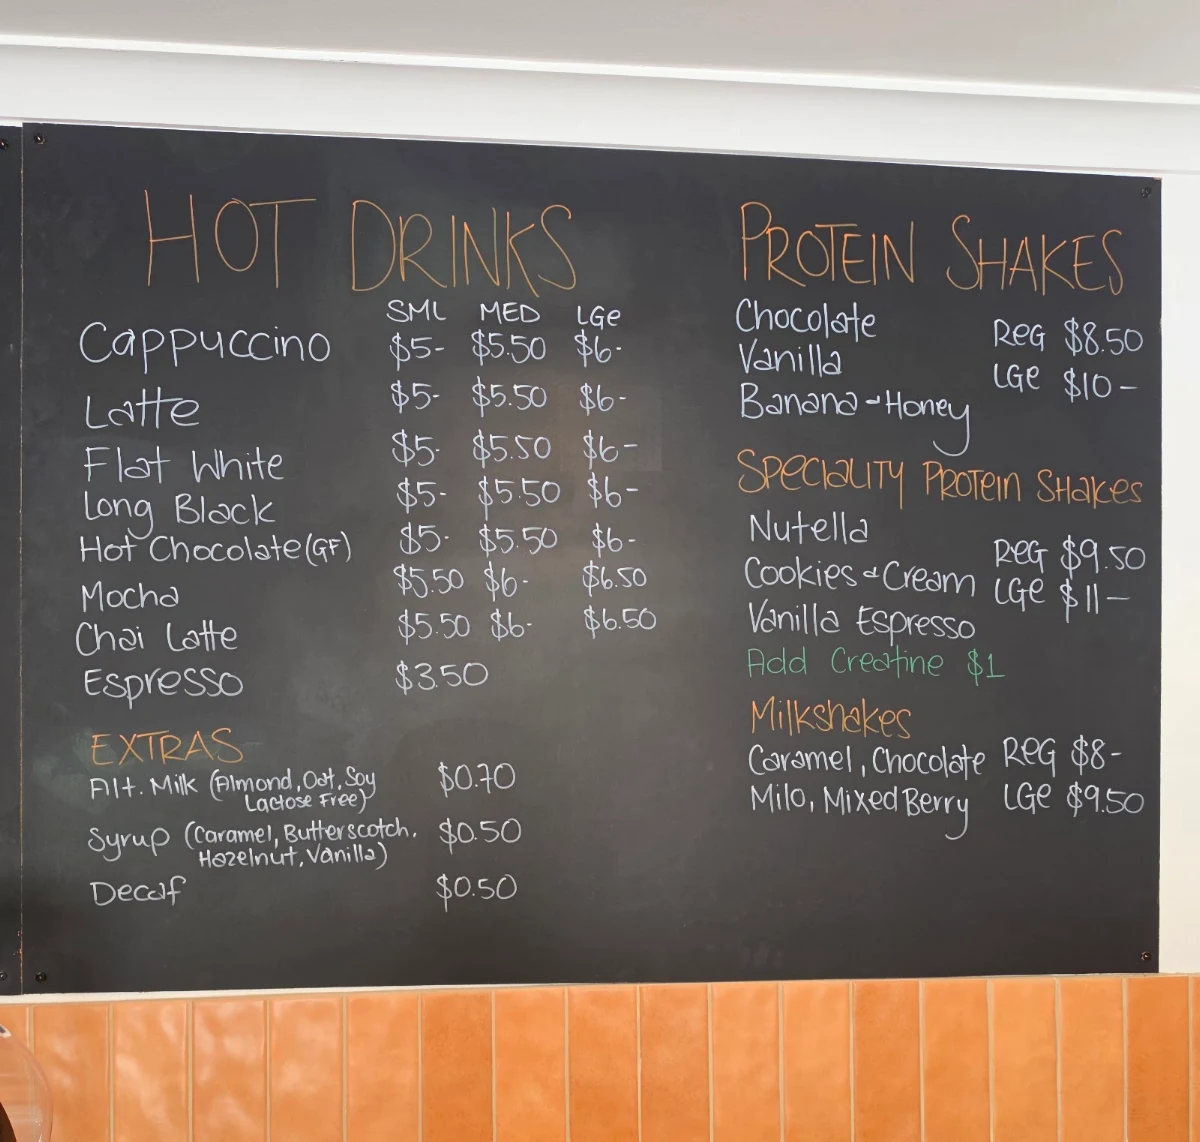 HOT DRINKS
SML MED LGe
Cappuccino $5- $5.50 $6-
Latte $5- $5.50 $6-
Flat White $5- $5.50 $6-
Long Black $5- $5.50 $6-
Hot Chocolate (GF) $5- $5.50 $6-
Mocha $5.50 $6- $6.50
Chai Latte $5.50 $6- $6.50
Espresso $3.50
EXTRAS
Alt. Milk (Almond, Oat, Soy $0.70
Lactose Free)
Syrup (Caramel, Butterscotch, $0.50
Hazelnut, Vanilla)
Decaf $0.50
PROTEIN SHAKES
Chocolate REG $8.50
Vanilla LGe $10-
Banana & Honey
SPECIALITY PROTEIN SHAKES
Nutella REG $9.50
Cookies & Cream LGe $11-
Vanilla Espresso
Add Creatine $1
Milkshakes
Caramel, Chocolate REG $8-
Milo, Mixed Berry LGe $9.50